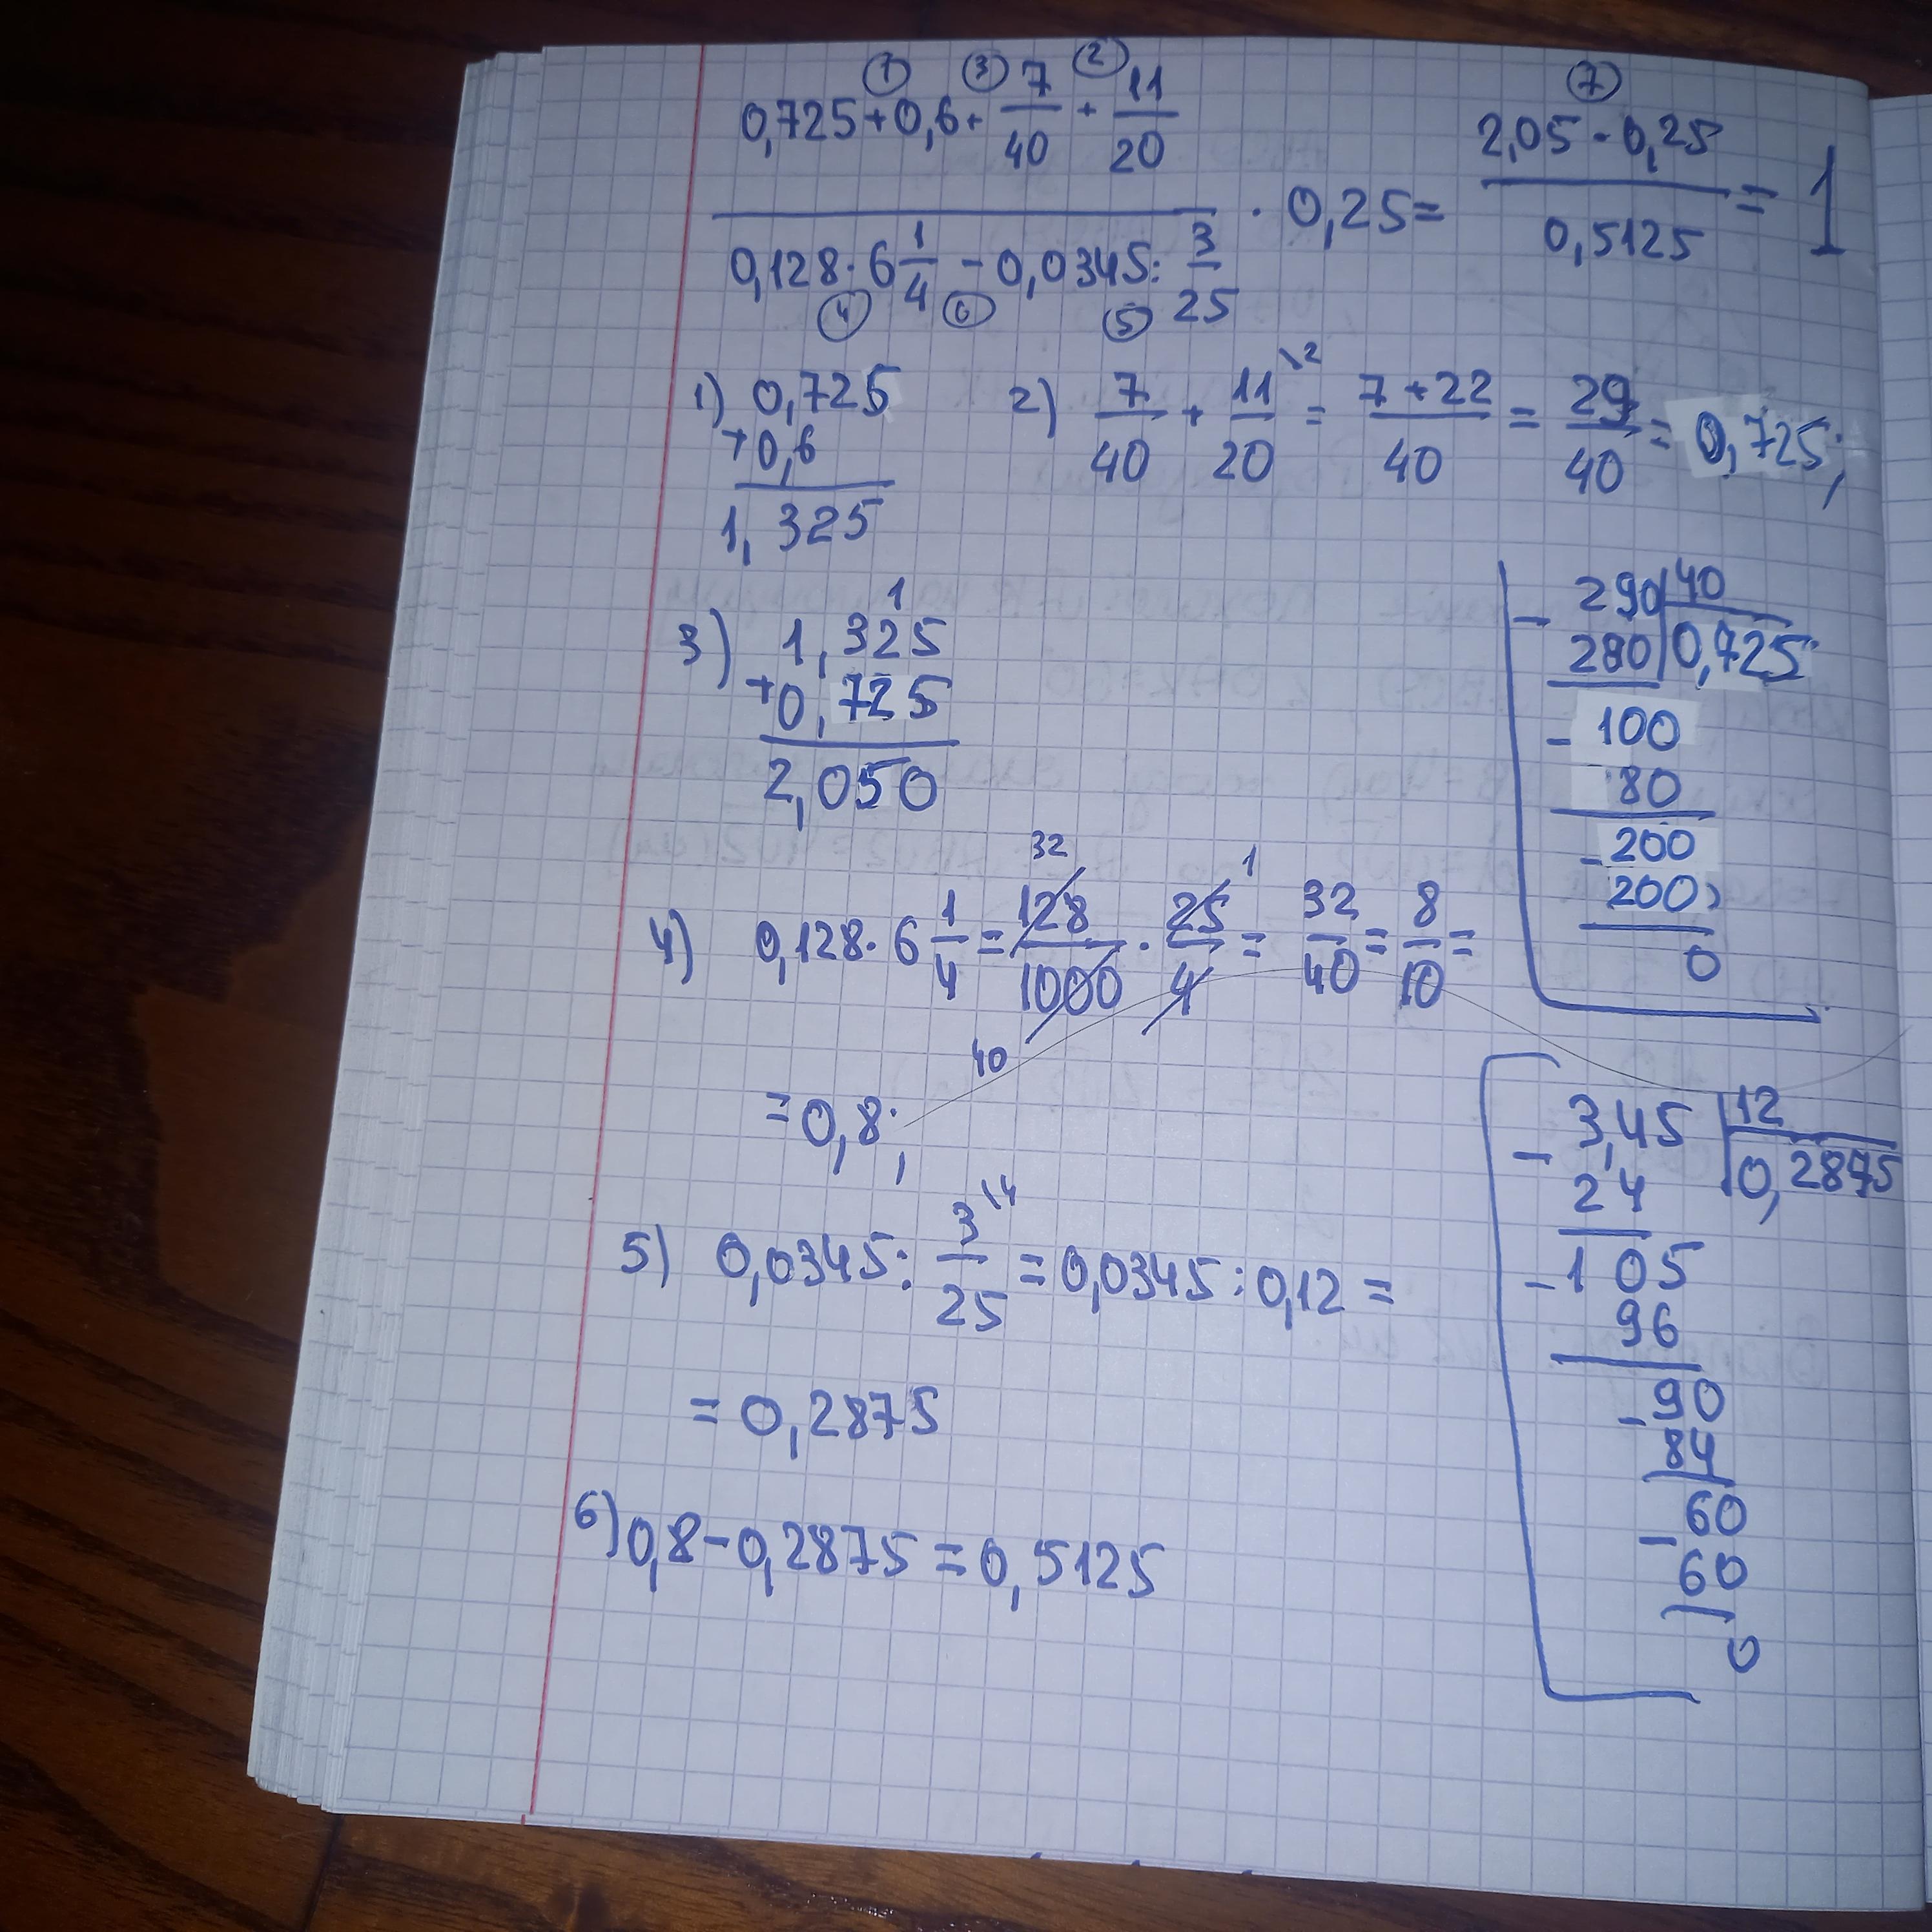 ① ③ ② ⑦
0,725+0,6+ 7/40 + 11/20
0,128·6 1/4 - 0,0345: 3/25
· 0,25=
2,05·0,25 / 0,5125 = 1
④ ⑥ ⑤
1) 0,725
+0,6
1,325
2) 7/40 + 11/20 \2 = 7+22/40 = 29/40 = 0,725;
290 40
- 280 0,725
- 100
80
- 200
200
0
1
3) 1,325
+0,725
2,050
4) 0,128·6 1/4 = 128/1000 · 25/4 = 32/40 = 8/10 =
32 1
40
=0,8;
3,45 12
- 24 0,2875
- 105
96
- 90
84
- 60
60
0
5) 0,0345: 3/25 \4 = 0,0345:0,12=
= 0,2875
6) 0,8-0,2875=0,5125